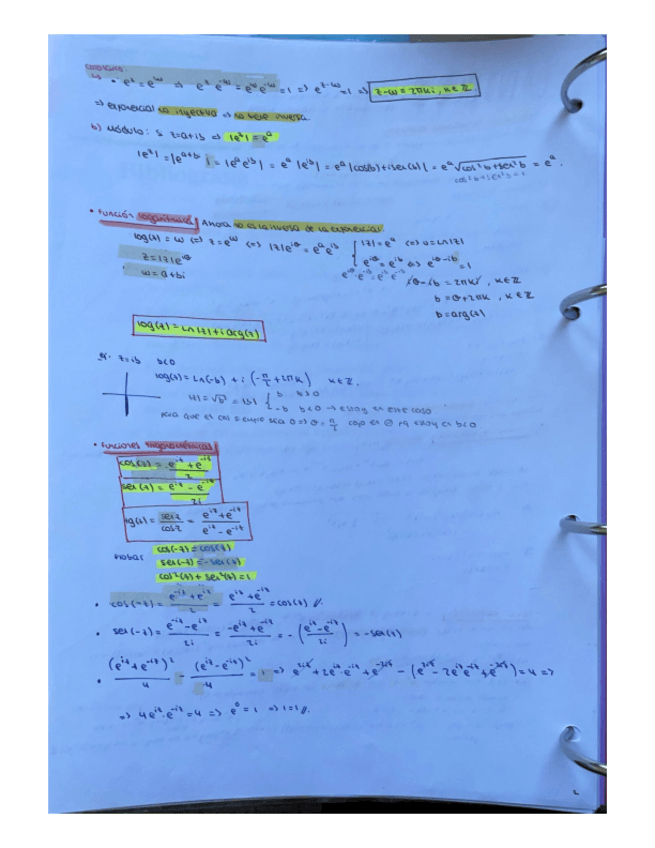 • e^z = e^w => e^z e^-w = e^w e^-w = 1 => e^z-w = 1 => z-w = 2πki, k∈ℤ
=> exponencial no inyectiva => no tiene inversa.
b) Módulo: si z=a+ib => |e^z| = e^a
|e^z| = |e^a+bi| = |e^a e^ib| = e^a |e^ib| = e^a |cos(b)+isen(b)| = e^a √cos²b+sen²b = e^a.
cos²b+sen²b=1
• Función logarítmica Ahora no es la inversa de la exponencial
log(z) = w <=> z=e^w <=> |z|e^iθ = e^a e^ib { |z|=e^a <=> a=Ln|z|
z=|z|e^iθ e^iθ = e^ib <=> e^iθ-ib = 1
w=a+bi e^iθ e^-ib = e^ib e^-ib
iθ-ib = 2πki, k∈ℤ
b=θ+2πk, k∈ℤ
b=arg(z)
log(z) = Ln|z| + i arg(z)
ej. z=ib b<0
log(z) = Ln(-b) + i (-π/2 + 2πk) k∈ℤ.
|z| = √b² = |b| { b b>0
-b b<0 → estoy en este caso
para que el cos siempre sea 0 => θ = π/2 cojo el ⊖ pq estoy en b<0
• Funciones trigonométricas
cos(z) = e^iz + e^-iz / 2
sen(z) = e^iz - e^-iz / 2i
tg(z) = senz / cosz = e^iz + e^-iz / e^iz - e^-iz
Probar cos(-z) = cos(z)
sen(-z) = -sen(z)
cos²(z) + sen²(z) = 1
• cos(-z) = e^-iz + e^iz / 2 = e^iz + e^-iz / 2 = cos(z) //.
• sen(-z) = e^-iz - e^iz / 2i = -e^iz + e^-iz / 2i = - (e^iz - e^-iz / 2i) = -sen(z)
• (e^iz + e^-iz)² / 4 - (e^iz - e^-iz)² / 4 = 1 => e^2iz + 2e^iz · e^-iz + e^-2iz - (e^2iz - 2e^iz e^-iz + e^-2iz) = 4 =>
=> 4e^iz · e^-iz = 4 => e^0 = 1 => 1=1 //.
2